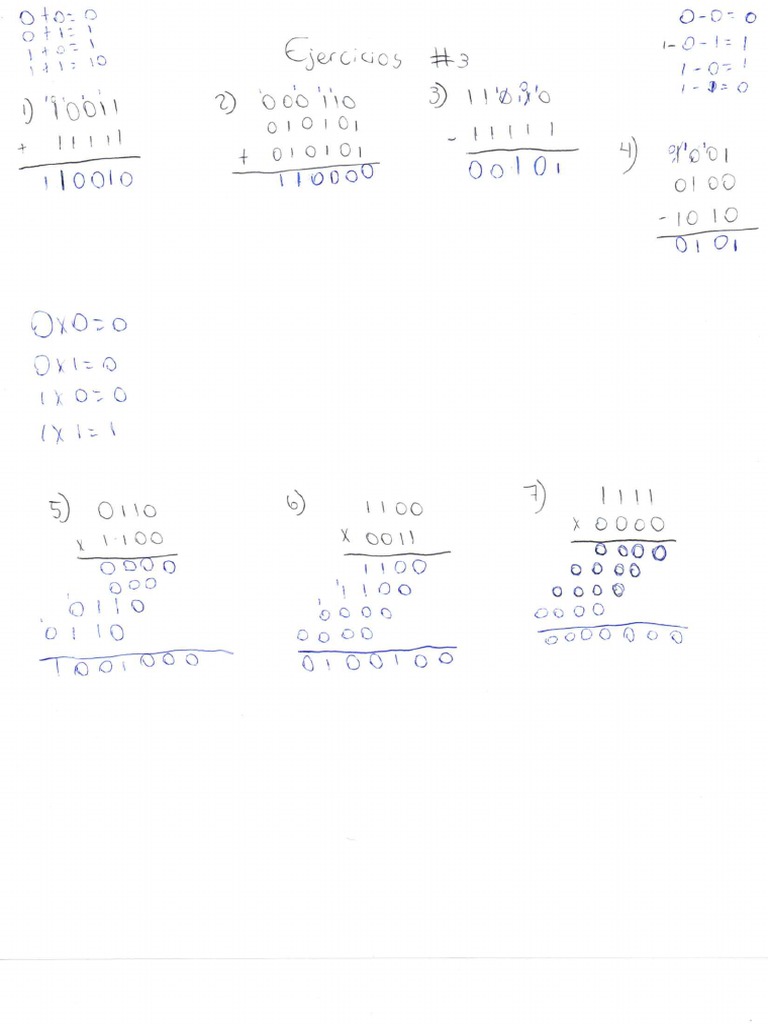 Ejercicios #3
0+0=0
0+1=1
1+0=1
1+1=10
0-0=0
1-0-1=1
1-0=1
1-1=0
1) 10011
+ 11111
110010
2) 000110
010101
+ 010101
110000
3) 110110
- 11111
00101
4) 1001
0100
-1010
0101
0x0=0
0x1=0
1x0=0
1x1=1
5) 0110
x 1100
0000
000
0110
0110
1001000
6) 1100
x 0011
1100
1100
0000
0000
0100100
7) 1111
x 0000
0000
0000
0000
0000
0000000